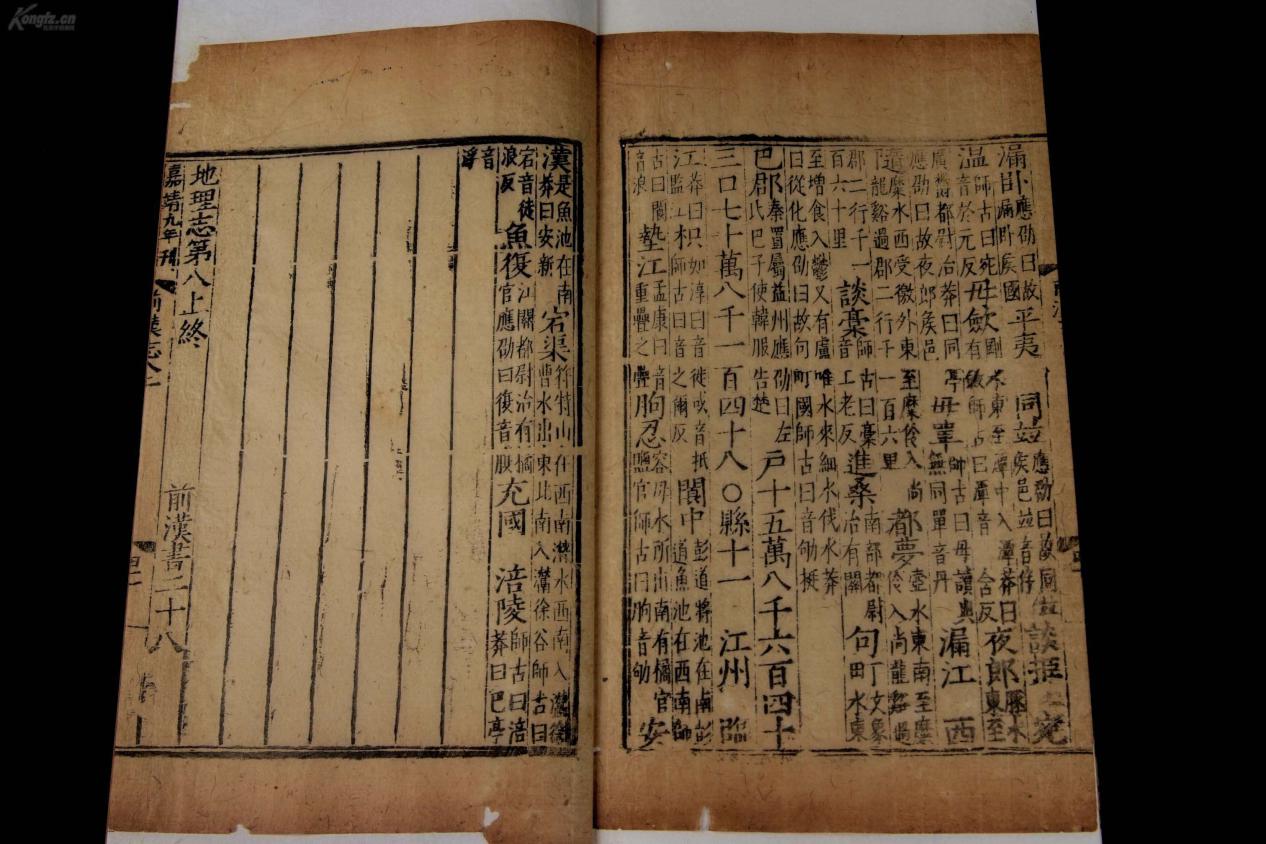 漏卧應劭曰故漏卧侯國 平夷 同竝應劭曰故同竝侯邑竝音伴 談指 宛
温師古曰宛音於元反 毋歛剛水東至潭中入潭莽曰有歛師古曰潭音 夜郎豚水東至
廣鬱都尉治莽曰同亭應劭曰故夜郎侯邑 毋單師古曰毋讀與無同單音丹 漏江 西
隨糜水西受徼外東至糜伶入尚龍谿過郡二行千一百六里 都夢壺水東南至糜伶入尚龍谿過
郡二行千一百六十里 談稾師古曰稾音工老反 進桑南部都尉治有關 句町文象水東
至增食入鬱又有盧唯水來細水伐水莽曰從化應劭曰故句町國師古曰音劬挺
巴郡秦置屬益州應劭曰左氏巴子使韓服告楚 戶十五萬八千六百四十
三口七十萬八千一百四十八○縣十一 江州 臨
江莽曰監江 枳如淳曰音徙或音抵師古曰音之爾反 閬中彭道將池在南彭道魚池在西南師
古曰閬音浪 墊江孟康曰音重疊之疊 朐忍容毋水所出南有橘官鹽官師古曰朐音劬 安
漢是魚池在南莽曰安新 宕渠符特山在西南潛水西南入江 曹水出東北南入灊徐谷師古曰
宕音徒浪反 魚復江關都尉治有橘官應劭曰復音腹 充國 涪陵莽曰巴亭師古曰涪
音浮
地理志第八上終 前漢書二十八
嘉靖九年刊 前漢志八上
Kongfz.cn